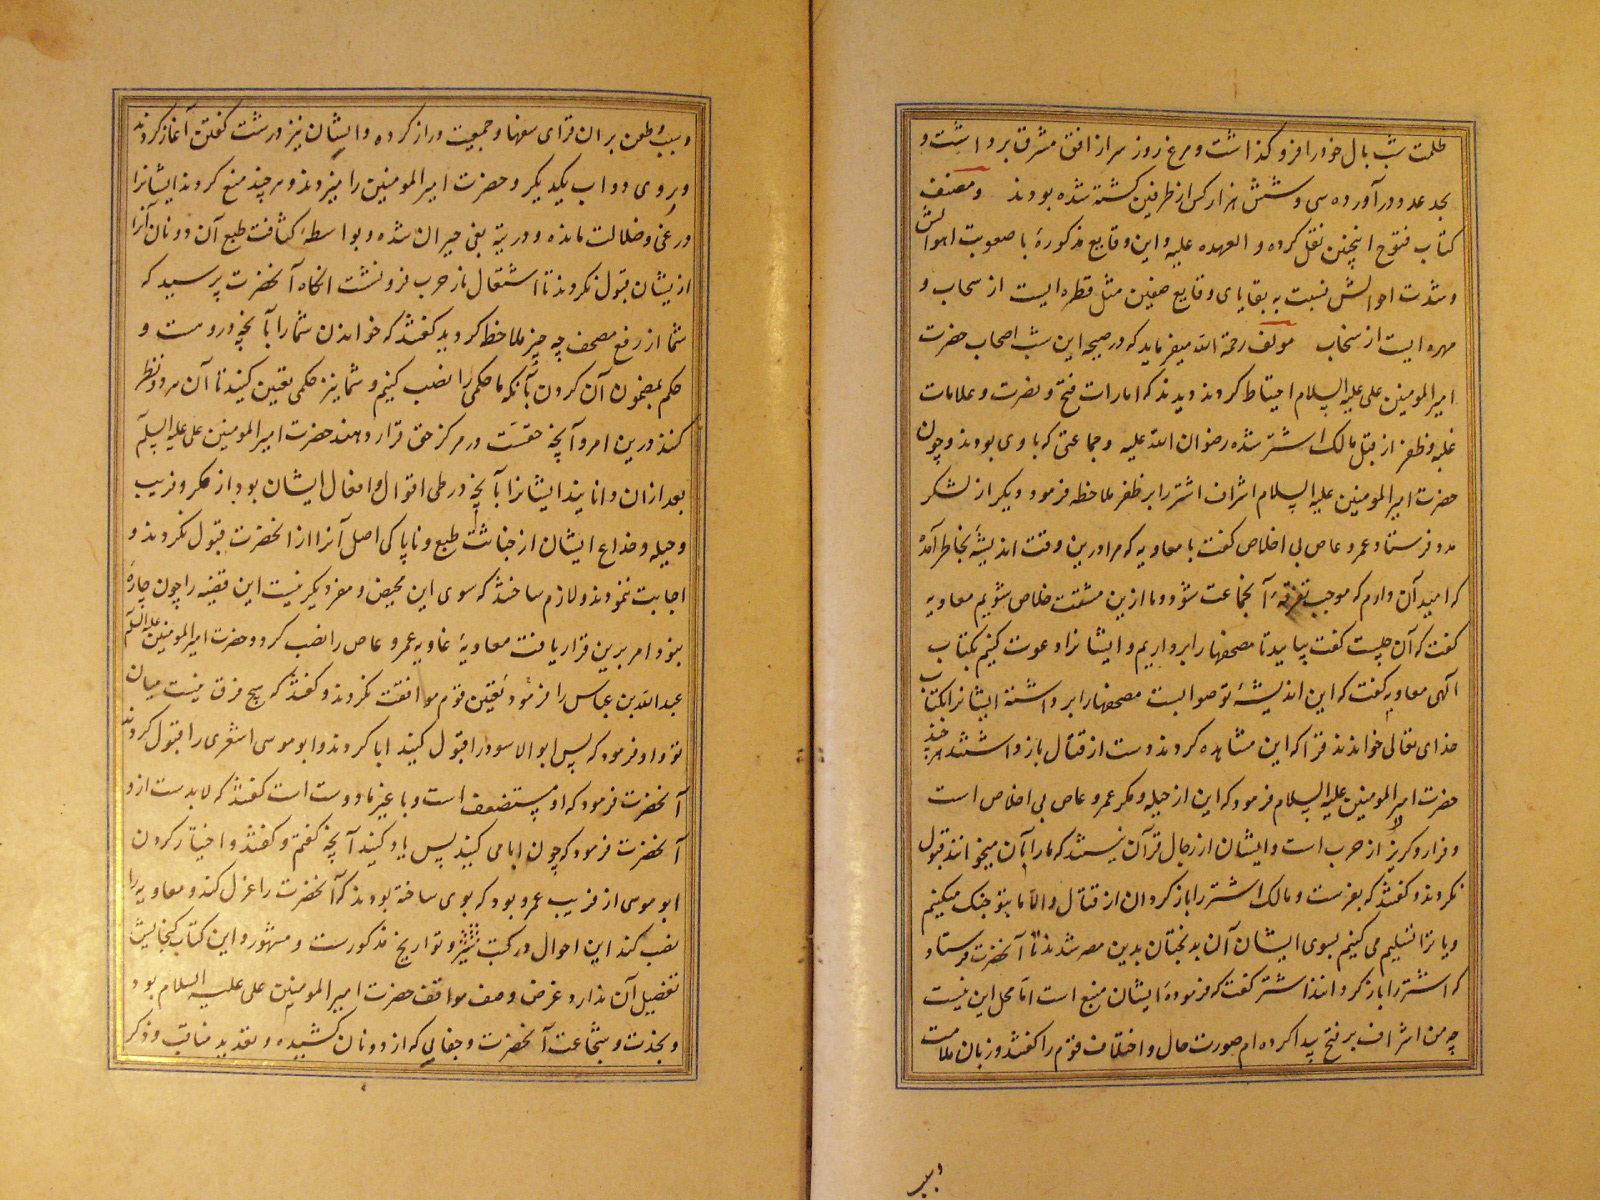 ظلمت شب بال خود را فرو گذاشت و مرغ روز سر از افق مشرق برداشت و
بحد عدد در آورده سی و شش هزار کس از طرفین کشته شده بودند و مصنف
کتاب فتوح اینچنین نقل کرده و العهده علیه و این وقایع مذکوره با صعوبت اهوالش
و شدت احوالش نسبت به بقایای وقایع صفین مثل قطره ایست از سحاب و
مهره ایست از سخاب مولف رحمة الله میفرماید که در صبیحه این شب اصحاب حضرت
امیر المومنین علی علیه السلام احتیاط کردند دیدند که امارات فتح و نصرت و علامات
غلبه و ظفر از قبل مالک اشتر شده رضوان الله علیه و جماعتی که با وی بودند و چون
حضرت امیر المومنین علیه السلام اشراف اشتر را بر ظفر ملاحظه فرمود دیگر از لشکر
مدد فرستاد عمرو عاص بی اخلاص گفت با معاویه که مرا درین وقت اندیشهٔ بخاطر آمده
که امید آن دارم که موجب تفرقهٔ آنجماعت شود و ما ازین مشقت خلاص شویم معاویه
گفت که آن چیست گفت بیایید تا مصحفها را برداریم و ایشانرا دعوت کنیم بکتاب
الهی معاویه گفت که این اندیشهٔ تو صوابست مصحفها را برداشته ایشانرا بکتاب
خدای تعالی خواندند قرا که این مشاهده کردند دست از قتال باز داشتند هر چند
حضرت امیر المومنین علیه السلام فرمود که این از حیله و مکر عمرو عاص بی اخلاص است
و فرار و گریز از حرب است و ایشان از رجال قرآن نیستند که ما را بآن میخوانند قبول
نکردند و گفتند که بفرست و مالک اشتر را باز گردان از قتال و الا ما بتو جنگ میکنیم
و یا ترا تسلیم می کنیم بسوی ایشان آن بدبختان بدین مصر شدند تا آنحضرت فرستاد
که اشتر را باز گردانند اشتر گفت که فرمودهٔ ایشان متبع است اما محل این نیست
چه من اشراف بر فتح پیدا کرده ام صورت حال و اختلاف قوم را گفتند و زبان ملامت
و سب و طعن بر آن قرای سفها و جمعیت دراز کرده و ایشان نیز درشت گفتن آغاز کردند
و بروی دواب یکدیگر و حضرت امیر المومنین را میزدند و هر چند منع کردند ایشانرا
در غی و ضلالت مانده و در تیه بغی حیران شده و بواسطهٔ کثافت طبع آن دونان آنرا
ازیشان قبول نکردند تا اشتغال نار حرب فرو نشت انکاه آنحضرت پرسید که
شما از رفع مصحف چه چیز ملاحظه کردید گفتند که خواندن شما را بآنچه دروست و
حکم بمضمون آن کردن بآنکه ما حکمی را نصب کنیم و شما نیز حکمی تعیین کنید تا آن هر دو نظر
کنند درین امر و آنچه حقست در مرکز حق قرار دهند حضرت امیر المومنین علی علیه السلام
بعد ازان دانانید ایشانرا بآنچه در طی اقوال و افعال ایشان بود از مکر و فریب
و حیله و خداع ایشان از خباثت طبع و ناپاکی اصل آنرا از آنحضرت قبول نکردند و
اجابت ننمودند و لازم ساختند که سوی این محیص و مفر دیگر نیست این قضیه را چون چارهٔ
نبود امر برین قرار یافت معاویهٔ غاویه عمرو عاص را نصب کرد و حضرت امیر المومنین علیه السلام
عبد الله بن عباس را فرمود یقین قوم موافقت نکردند و گفتند که هیچ فرق نیست میان
تو و او فرمود که پس ابو الاسود را قبول کنید ابا کردند و ابو موسی اشعری را قبول کردند
آنحضرت فرمود که او مستضعف است و با غیر ما دوست است گفتند که لابدست ازو
آنحضرت فرمود که چون ابا می کنید پس یاد کنید آنچه گفتم و گفتند و اختیار کردن
ابو موسی از فریب عمرو بود که بوی ساخته بودند که آنحضرت را عزل کند و معاویه را
نصب کند این احوال در کتب سیر و تواریخ مذکورست و مشهور و این کتاب گنجایش
تفصیل آن ندارد غرض وصف مواقف حضرت امیر المومنین علی علیه السلام بود
و نجدت و شجاعت آنحضرت و جفایی که از دونان کشیده و تعدید مناقب و ذکر